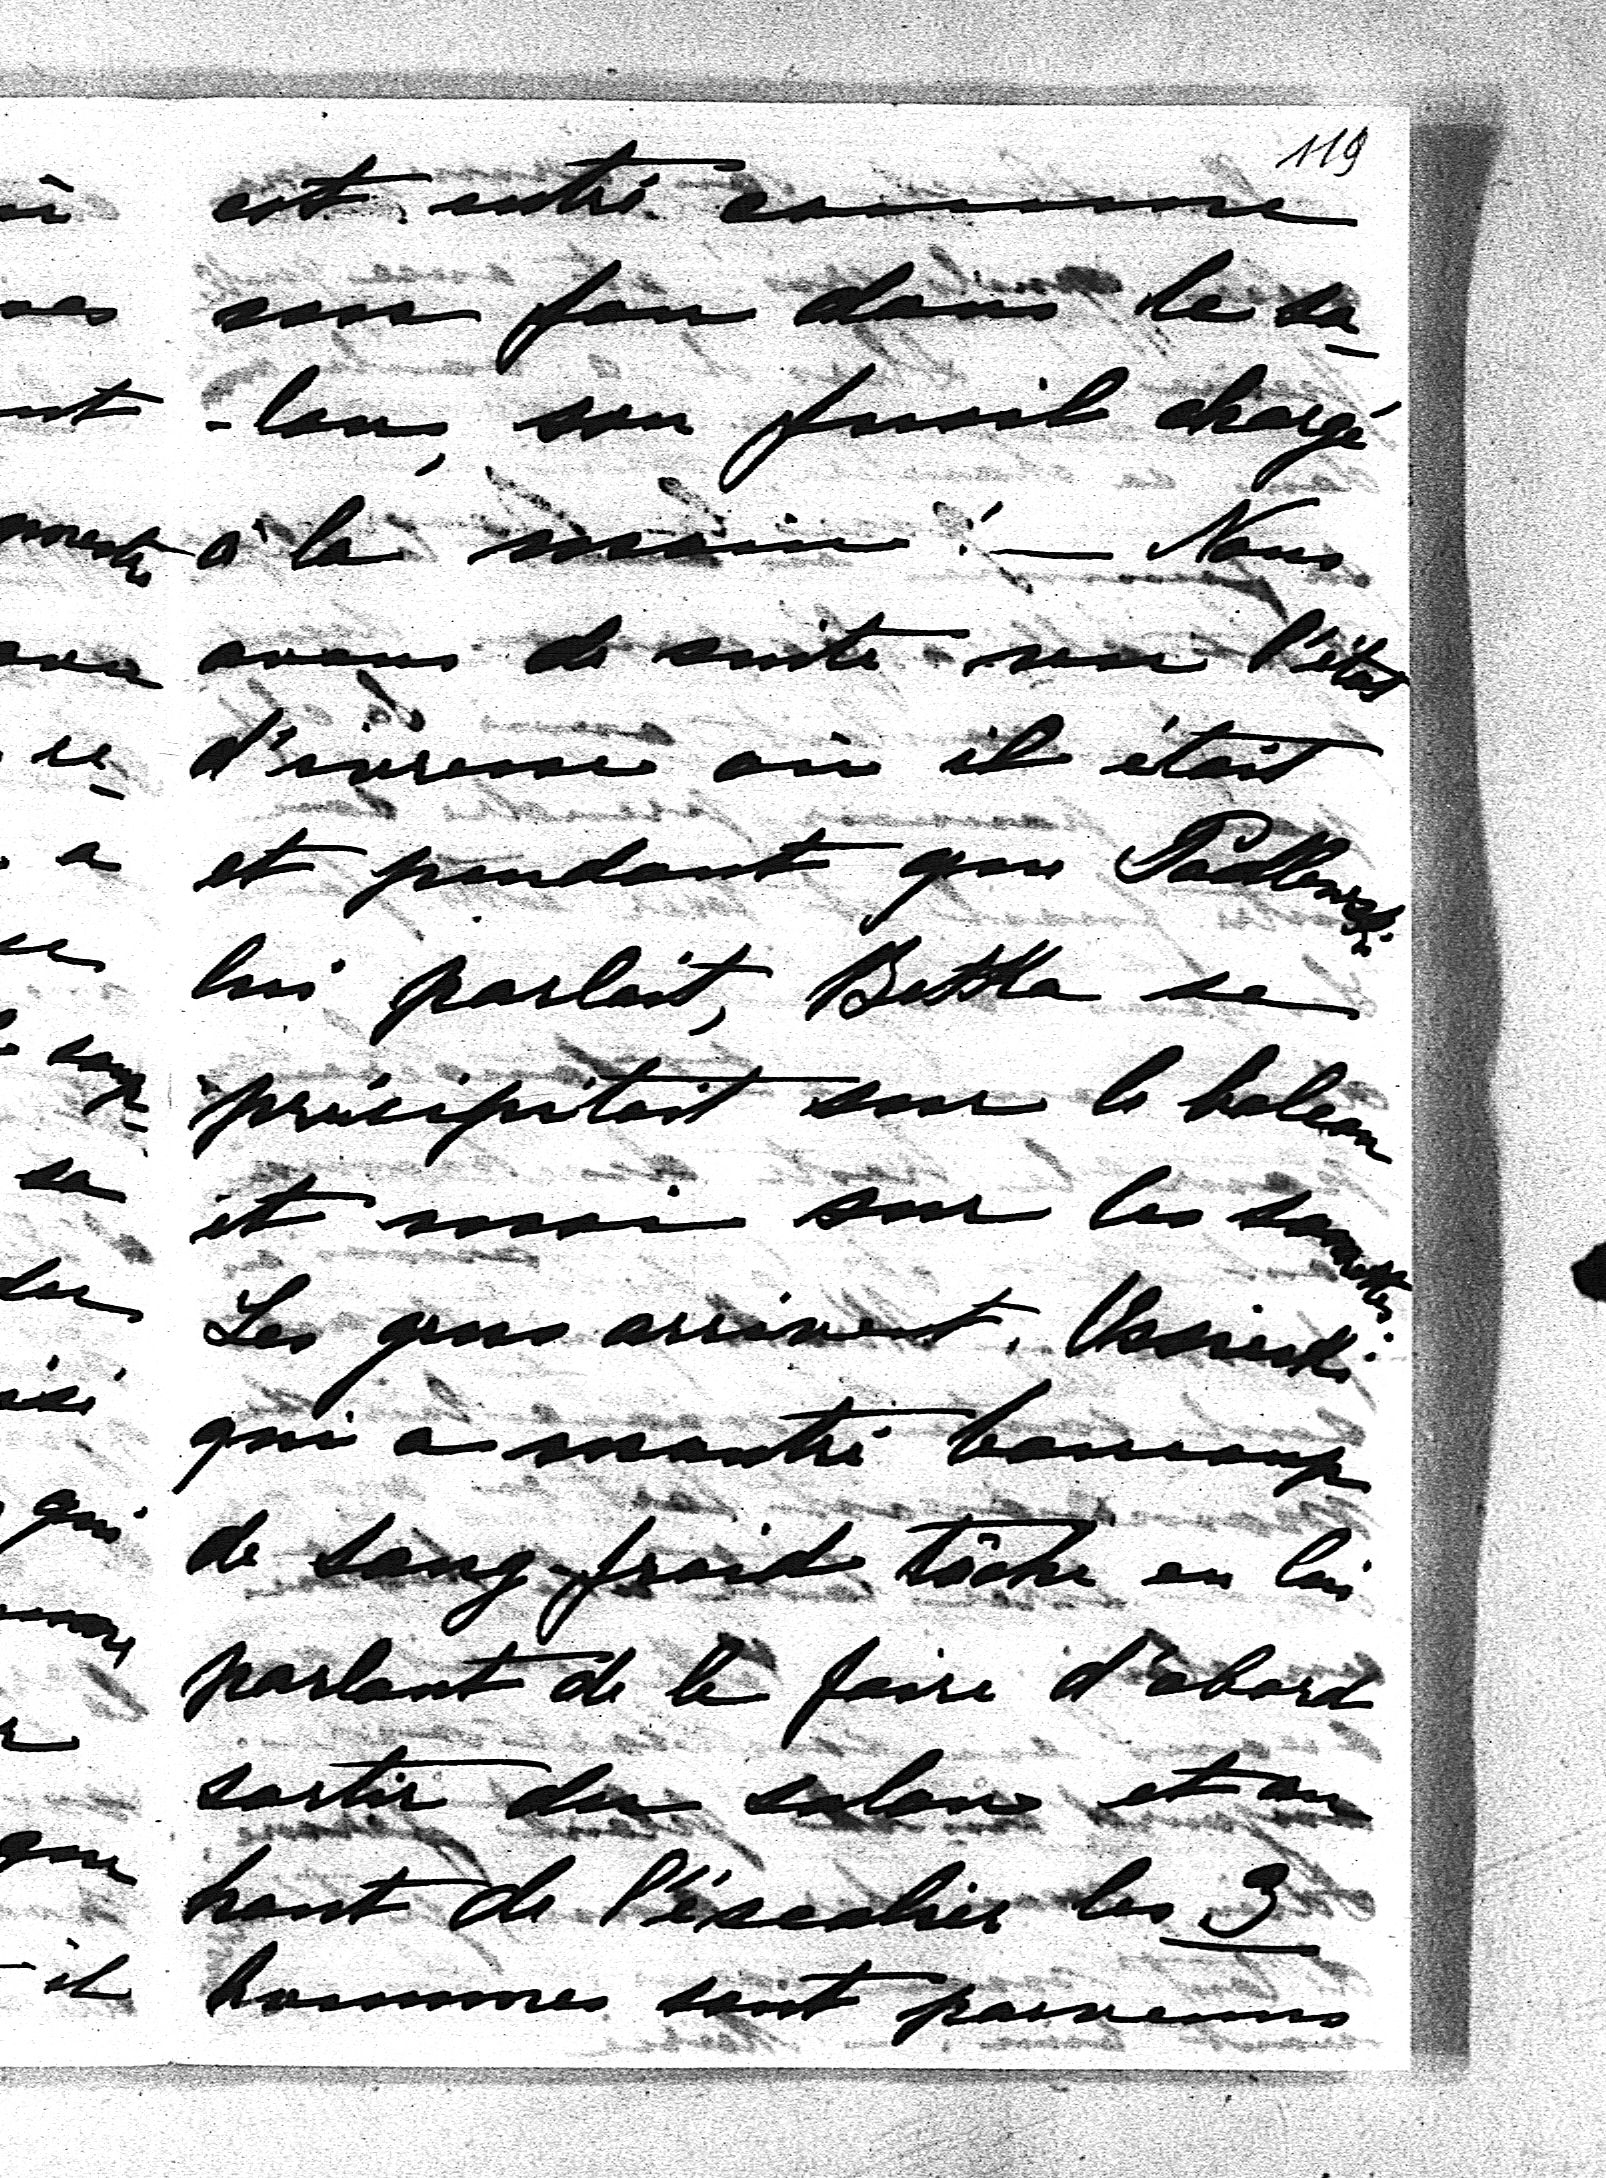 119
est entré comme
un fou dans le sa-
-lon, son fusil chargé
à la main! — Nous
avons de suite vu l'état
d'ivresse où il était
et pendant que Podlewski
lui parlait, Betka se
précipitait sur le balcon
et moi sur les sonnettes.
Les gens arrivent.
qui a montré beaucoup
de sang-froid tâche en lui
parlant de le faire d'abord
sortir du salon et au
haut de l'éscalier les 3
hommes sont parvenus